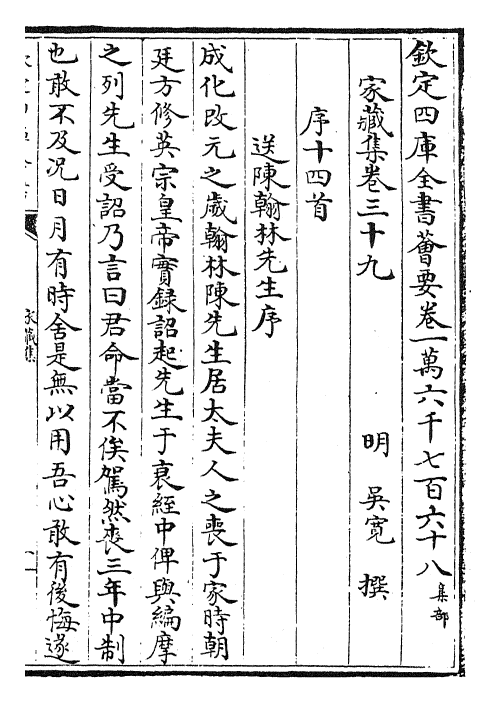 欽定四庫全書薈要卷一萬六千七百六十八集部
家藏集卷三十九
明 吳寛 撰
序十四首
送陳翰林先生序
成化改元之歲翰林陳先生居太夫人之喪于家時朝
廷方修英宗皇帝實錄詔起先生于衰絰中俾與編摩
之列先生受詔乃言曰君命當不俟駕然喪三年中制
也敢不及况日月有時舍是無以用吾心敢有後悔遂
家藏集